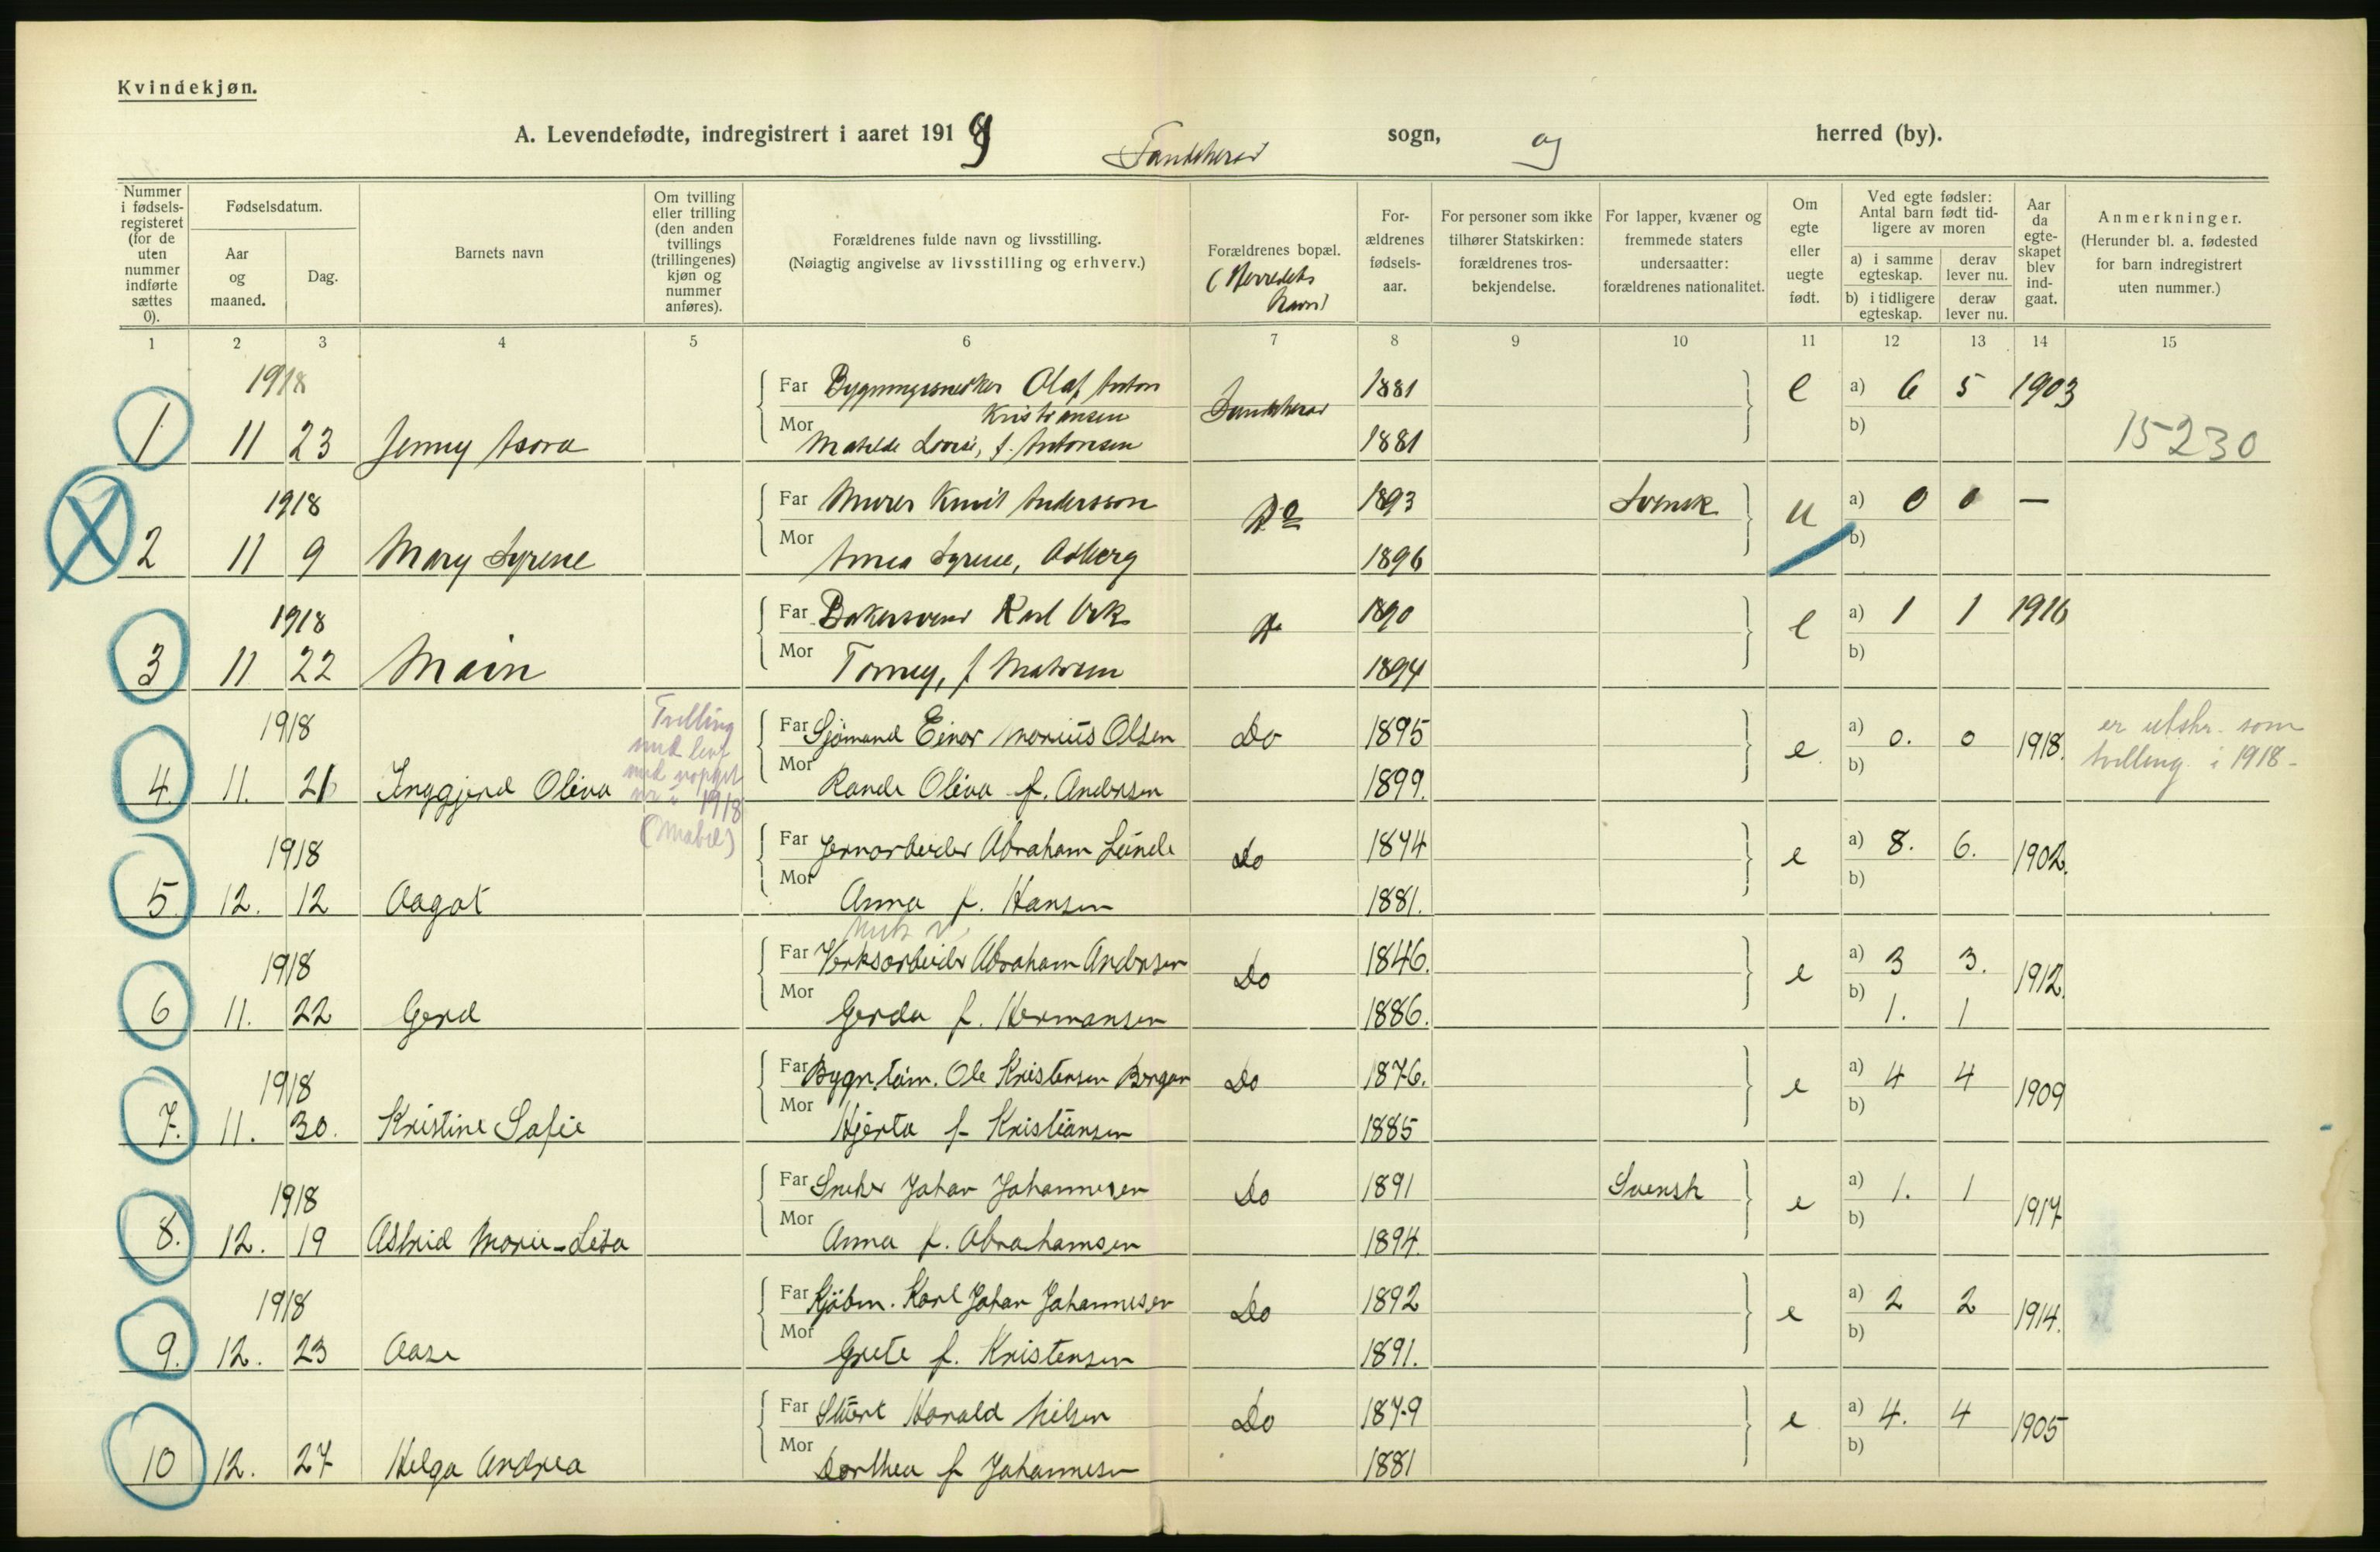 Kvindekjøn.
A. Levendefødte, indregistrert i aaret 1919 Sandeherad sogn, og herred (by).
Nummer i fødsels-registeret (for de uten nummer indførte sættes 0).
Fødselsdatum.
Aar og maaned.
Dag.
Barnets navn
Om tvilling eller trilling (den anden tvillings (trillingenes) kjøn og nummer anføres).
Forældrenes fulde navn og livsstilling.
(Nøiagtig angivelse av livsstilling og erhverv.)
Forældrenes bopæl.
(Herredets Navn)
For-ældrenes fødsels-aar.
For personer som ikke tilhører Statskirken: forældrenes tros-bekjendelse.
For lapper, kvæner og fremmede staters undersaatter: forældrenes nationalitet.
Om egte eller uegte født.
Ved egte fødsler: Antal barn født tid-ligere av moren
a) i samme egteskap. derav lever nu.
b) i tidligere egteskap. derav lever nu.
Aar da egte-skapet blev ind-gaat.
Anmerkninger.
(Herunder bl. a. fødested for barn indregistrert uten nummer.)
1 2 3 4 5 6 7 8 9 10 11 12 13 14 15
1918 Far Bygningssnedker Olaf Anton 1881 e a) 6 5 1903
Kristiansen Sandeherad
1 11 23 Jenny Asora Mor Matilde Lovise, f. Antonsen 1881 b) 15230
1918 Far Murer Knut Andersson Do 1893 Svensk u a) 0 0 —
2 11 9 Mary Syrene Mor Anna Syrene, Asberg 1896 b)
1918 Far Bakersvend Karl Ask Do 1890 e a) 1 1 1916
3 11 22 Main Mor Torney, f Mathisen 1894 b)
1918 Tvilling Far Sjømand Einar Marius Olsen Do 1895 e a) 0. 0 1918. er utskr. som
4. 11. 21 Inggjerd Oliva Mor Rande Oliva f. Andersen 1899. b) tvilling i 1918-
1918
(Mabel)
1918 Far Jernarbeider Abraham Lunde Do 1874 e a) 8. 6. 1902.
5. 12. 12 Aagot Mor Anna f. Hansen 1881. b)
1918 Far Verksarbeider Abraham Andersen Do 1876. e a) 3 3. 1912.
6 11. 22 Gerd Mor Gerda f. Hermansen 1886. b) 1. 1
1918 Far Bygn.tøm. Ole Kristensen Borgen Do 1876. e a) 4 4 1909
7. 11. 30. Kristine Sofie Mor Hjerta f Kristiansen 1885 b)
1918 Far Sneker Johan Johannesen Do 1891 Svensk e a) 1. 1 1917
8. 12. 19 Astrid Marie-Lisa Mor Anna f. Abrahamsen 1894. b)
1918 Far Kjøbm. Karl Johan Johannesen Do 1892 e a) 2 2 1914.
9. 12. 23 Aase Mor Grete f. Kristensen 1891. b)
Far Stuert Harald Nilsen Do 1879 e a) 4. 4 1905
10 12. 27 Helga Andrea Mor Dorthea f Johannesen 1881 b)